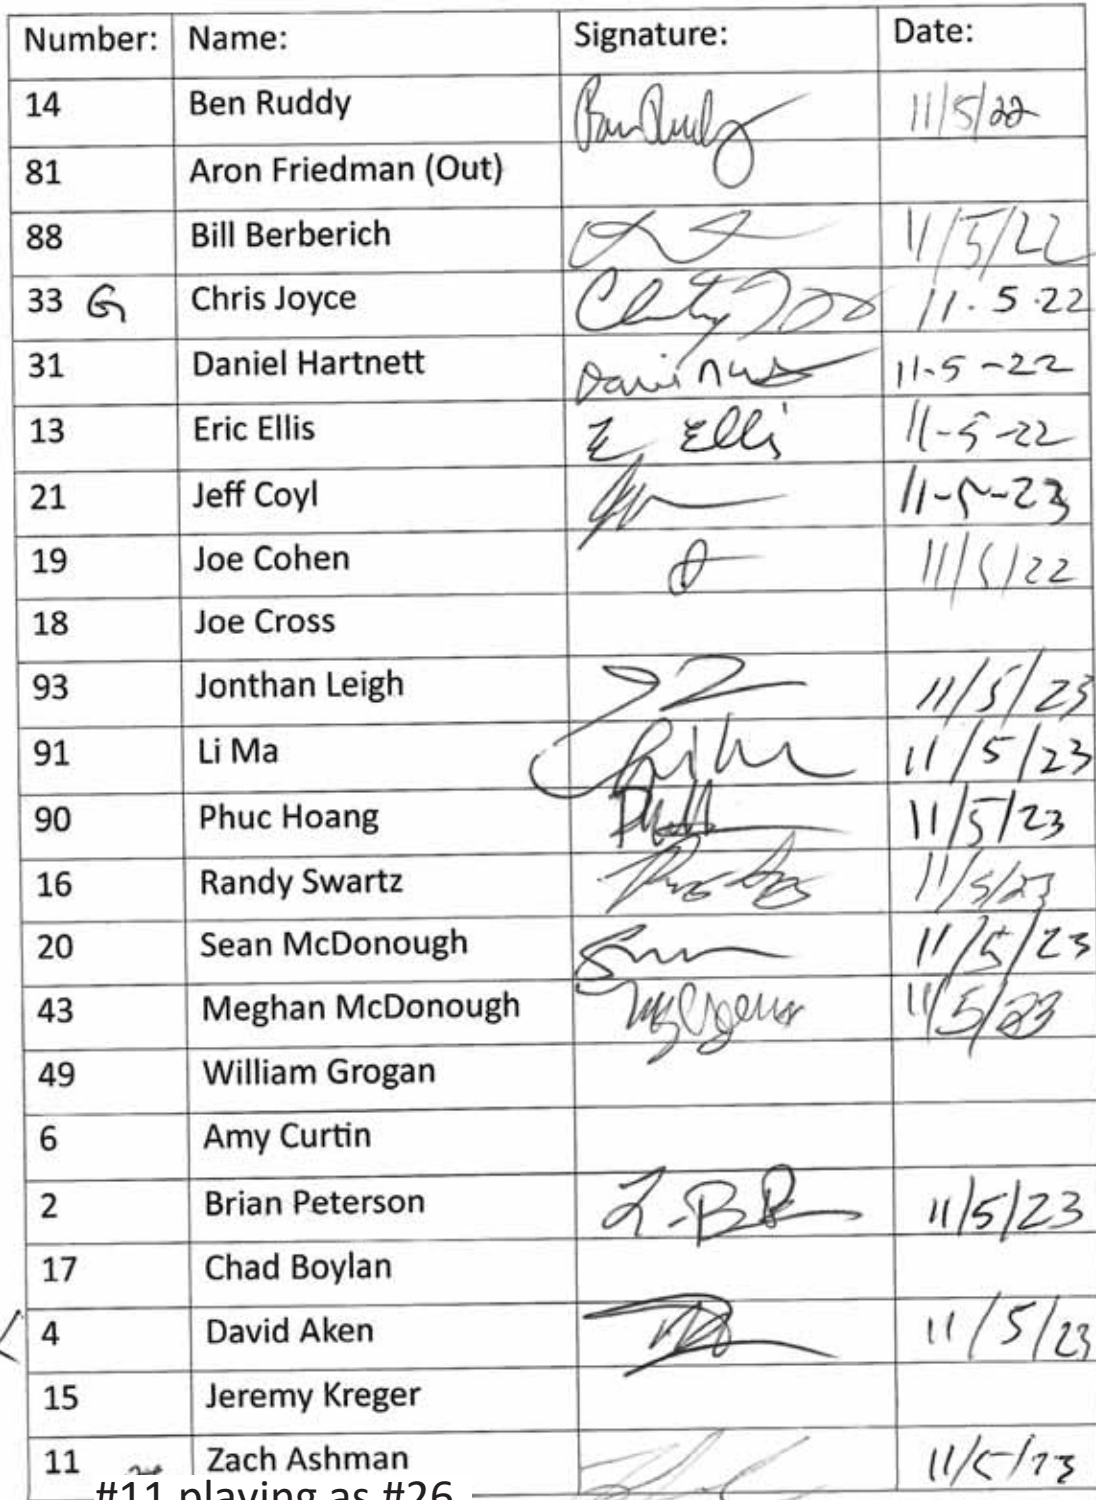 Number: Name: Signature: Date:
14 Ben Ruddy Ben Ruddy 11/5/22
81 Aron Friedman (Out)
88 Bill Berberich 11/5/22
33 G Chris Joyce 11.5.22
31 Daniel Hartnett 11-5-22
13 Eric Ellis E Ellis 11-5-22
21 Jeff Coyl 11-5-23
19 Joe Cohen 11/5/22
18 Joe Cross
93 Jonthan Leigh 11/5/23
91 Li Ma 11/5/23
90 Phuc Hoang 11/5/23
16 Randy Swartz 11/5/23
20 Sean McDonough 11/5/23
43 Meghan McDonough 11/5/23
49 William Grogan
6 Amy Curtin
2 Brian Peterson 11/5/23
17 Chad Boylan
4 David Aken 11/5/23
15 Jeremy Kreger
11 Zach Ashman 11/5/23
#11 playing as #26